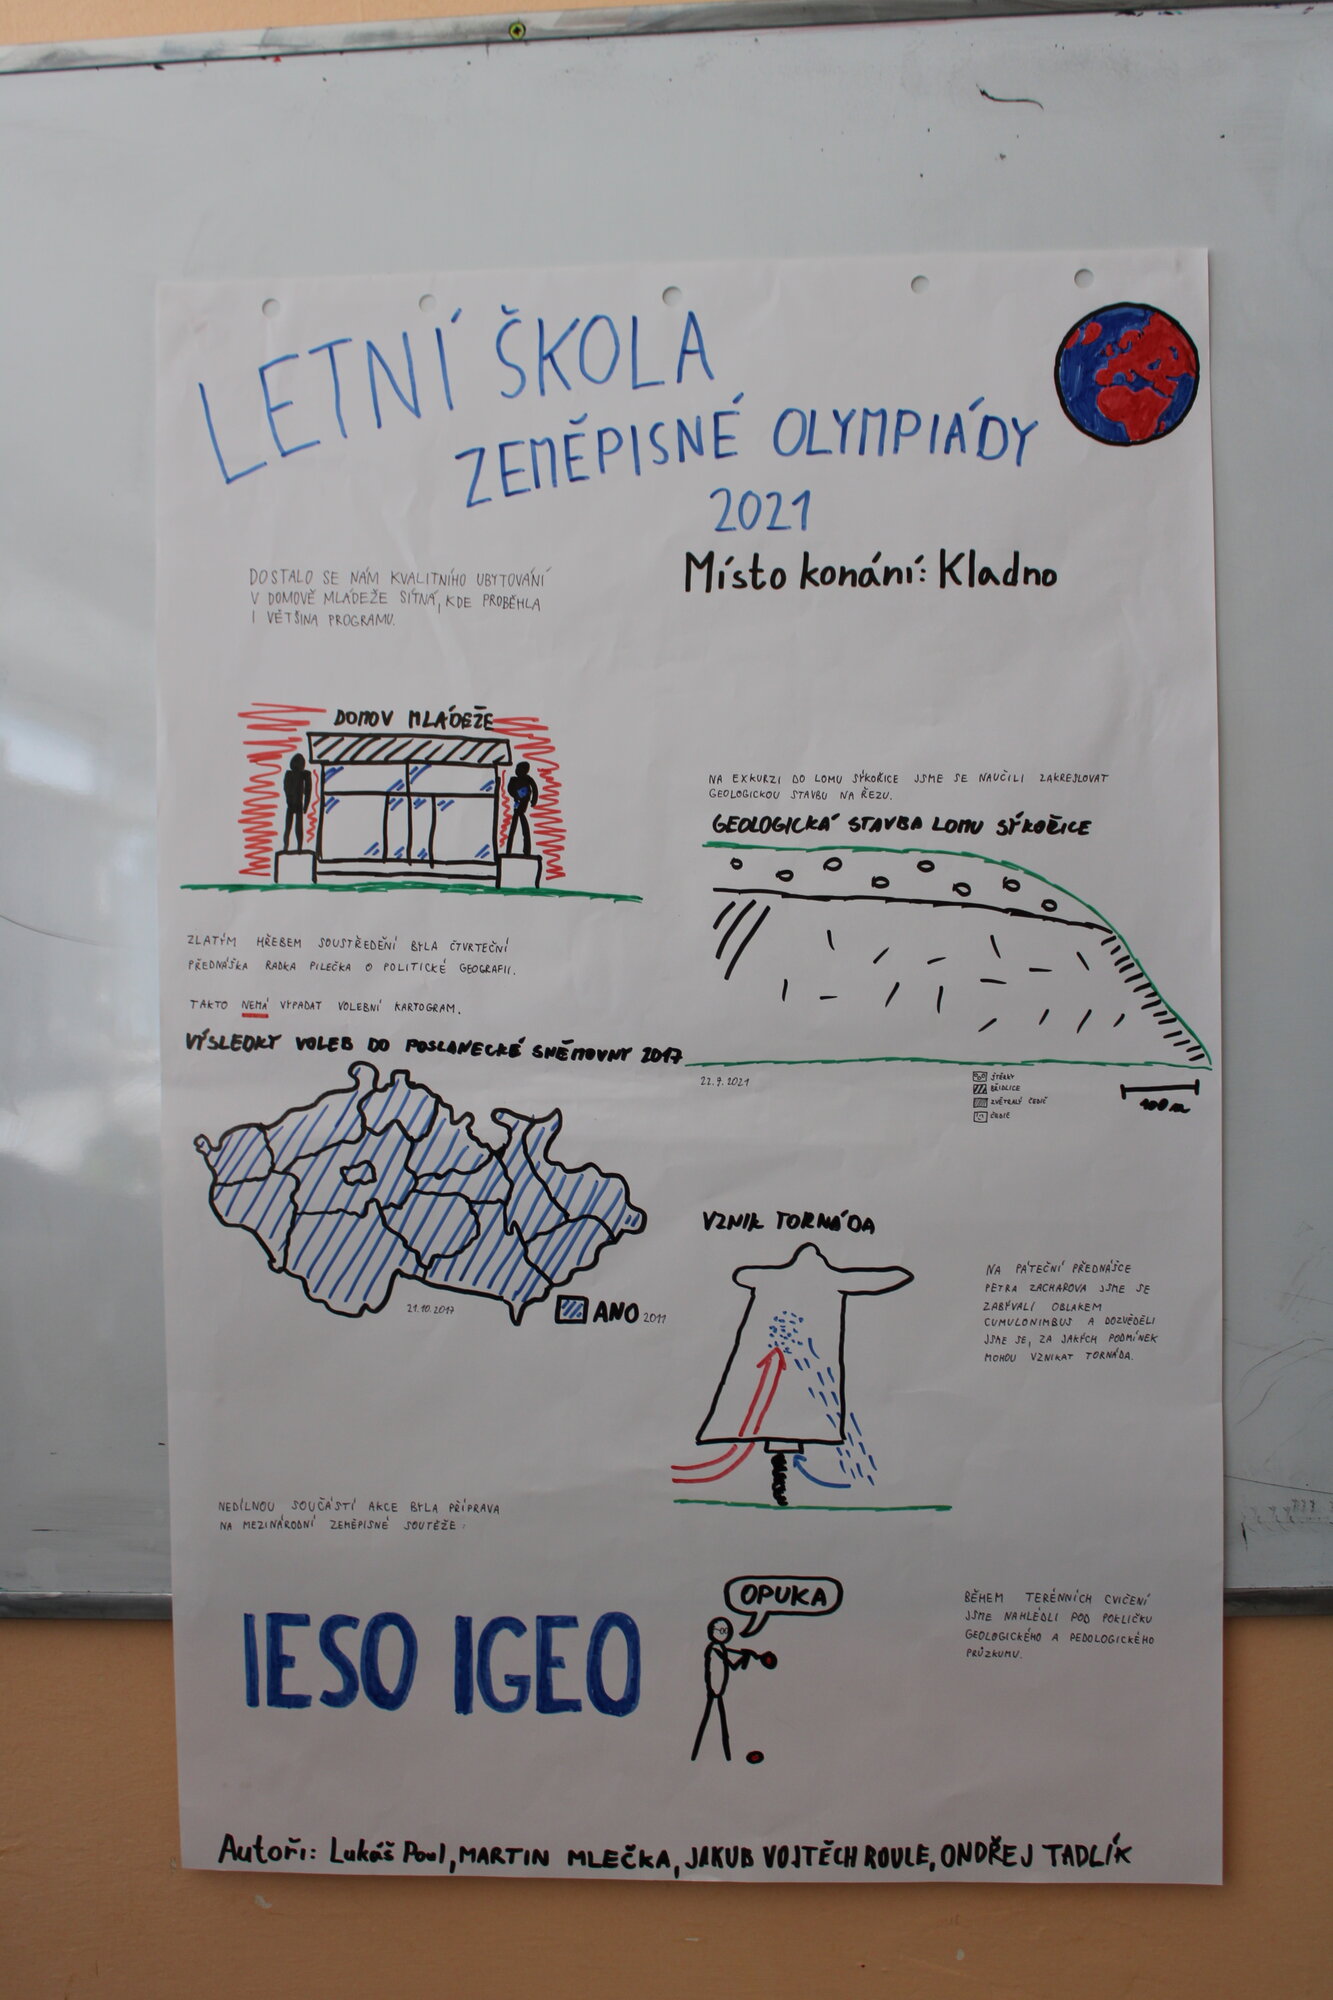 LETNÍ ŠKOLA
ZEMĚPISNÉ OLYMPIÁDY
2021
Místo konání: Kladno
DOSTALO SE NÁM KVALITNÍHO UBYTOVÁNÍ
V DOMOVĚ MLÁDEŽE SÍTNÁ, KDE PROBĚHLA
I VĚTŠINA PROGRAMU.
DOMOV MLÁDEŽE
NA EXKURZI DO LOMU SÝKOŘICE JSME SE NAUČILI ZAKRESLOVAT
GEOLOGICKOU STAVBU NA ŘEZU.
GEOLOGICKÁ STAVBA LOMU SÝKOŘICE
22.9.2021
ŠTĚRKY
BŘIDLICE
ZVĚTRALÝ ČEDIČ
ČEDIČ
100 m
ZLATÝM HŘEBEM SOUSTŘEDĚNÍ BYLA ČTVRTEČNÍ
PŘEDNÁŠKA RADKA PILEČKA O POLITICKÉ GEOGRAFII.
TAKTO NEMÁ VYPADAT VOLEBNÍ KARTOGRAM.
VÝSLEDKY VOLEB DO POSLANECKÉ SNĚMOVNY 2017
21.10.2017
ANO 2011
VZNIK TORNÁDA
NA PÁTEČNÍ PŘEDNÁŠCE
PETRA ZACHAROVA JSME SE
ZABÝVALI OBLAKEM
CUMULONIMBUS A DOZVĚDĚLI
JSME SE, ZA JAKÝCH PODMÍNEK
MOHOU VZNIKAT TORNÁDA.
NEDÍLNOU SOUČÁSTÍ AKCE BYLA PŘÍPRAVA
NA MEZINÁRODNÍ ZEMĚPISNÉ SOUTĚŽE:
IESO IGEO
OPUKA
BĚHEM TERÉNNÍCH CVIČENÍ
JSME NAHLÉDLI POD POKLIČKU
GEOLOGICKÉHO A PEDOLOGICKÉHO
PRŮZKUMU.
Autoři: Lukáš Poul, MARTIN MLEČKA, JAKUB VOJTĚCH ROULE, ONDŘEJ TADLÍK